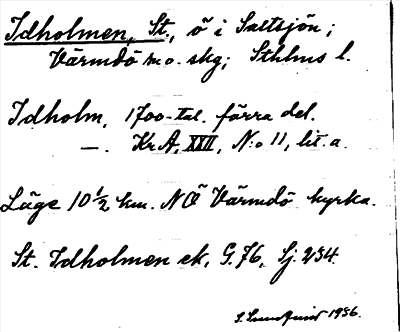 Idholmen, St., ö i Saltsjön;
Värmdö m.o. skg; Sthlms l.
Idholm, 1700-tal. förra del.
—. Kr A, XXII, N:o 11, lit. a.
Läge 10 1/2 km. NÖ Värmdö kyrka.
St. Idholmen ek, G. 76, Sj. 234.
S. Lundqvist 1936.